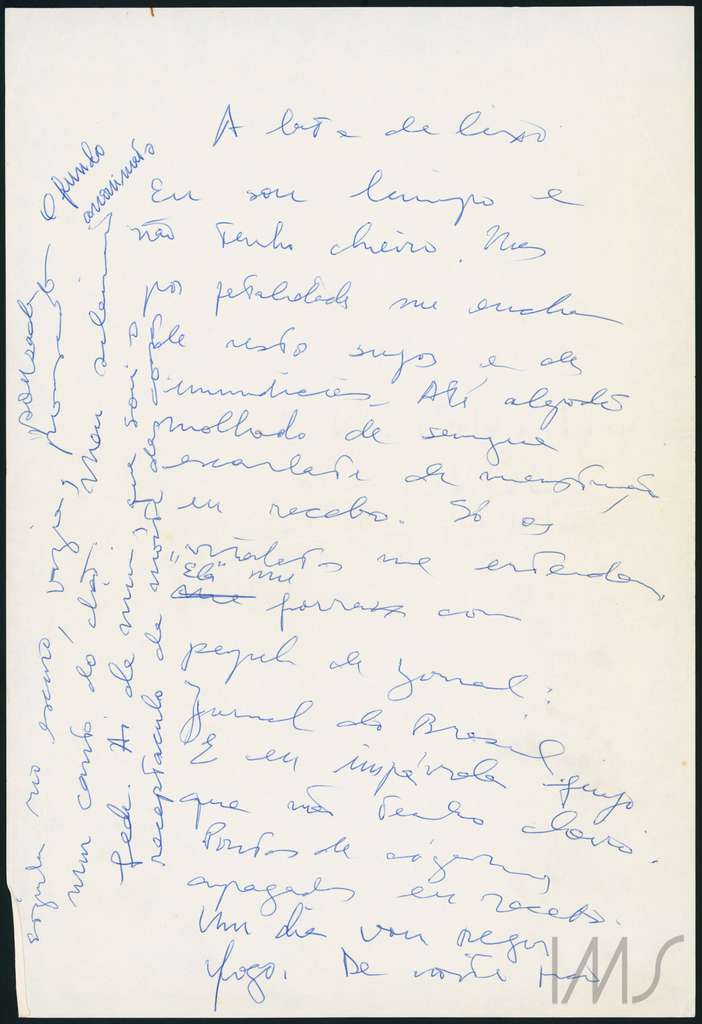 A lata de lixo
Eu sou limpo e
não tenho cheiro. Mas
por fatalidade me enchem
de resto sujos e de
imundicies. Até algodão
molhado de sangue
escarlate de menstruação
eu recebo. Só os
me entendem,
"Ela" me
forram com
papel de jornal:
Jornal do Brasil
E eu impávida finjo
que não tenho cheiro.
Pontas de cigarros
apagados eu recebo.
Um dia vou pegar
fogo. De noite
escuro, vazia, pousada
num canto do chão. Meu
fede. Ai de mim, que sou o
receptáculo da morte das coisas
O fundo
anonimato
IMS